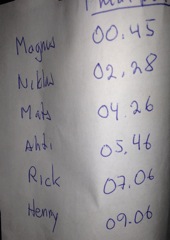 Magnus 00.45
Niklas 02.28
Mats 04.26
Ahti 05.46
Rick 07.06
Henry 09.06